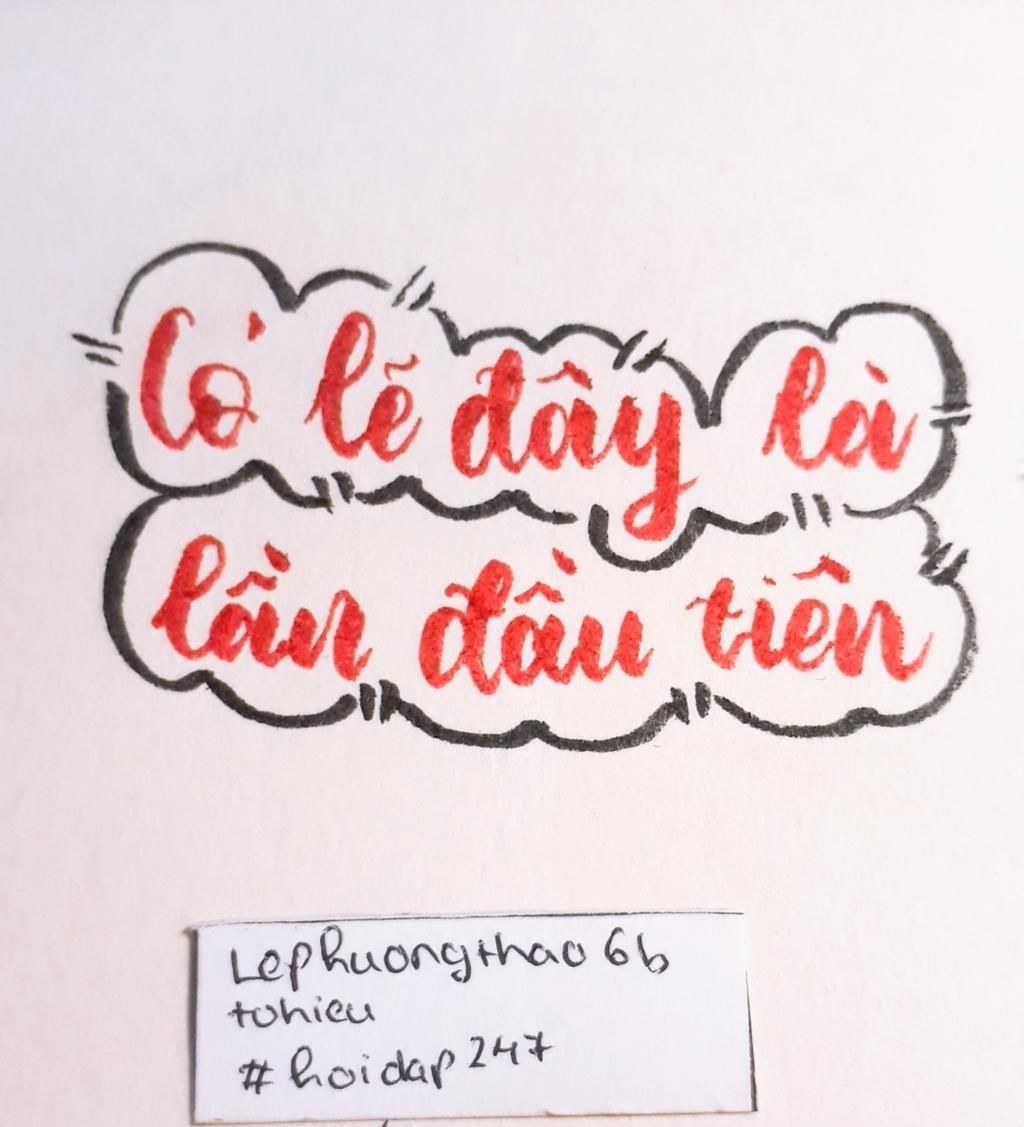 Có lẽ đây là
lần đầu tiên
Lephuongthao6b
tohieu
#hoidap247